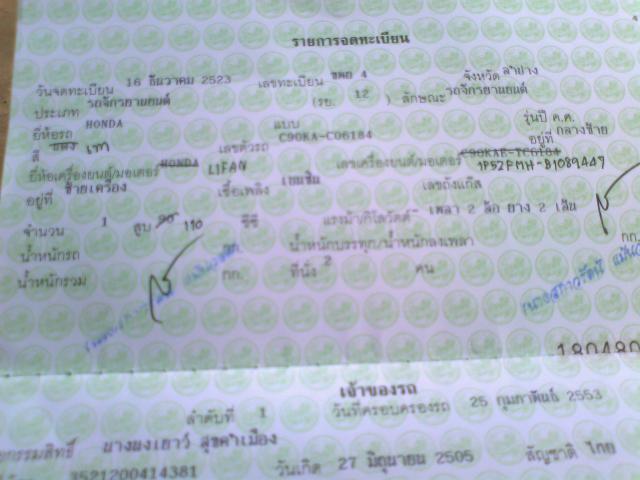 รายการจดทะเบียน
วันจดทะเบียน 16 ธันวาคม 2523 เลขทะเบียน 4 จังหวัด ลำปาง
ประเภท รถจักรยานยนต์ (รย. 12 ) ลักษณะ รถจักรยานยนต์
ยี่ห้อรถ HONDA แบบ รุ่นปี ค.ศ.
สี แดง เทา เลขตัวรถ C90KA-C06184 อยู่ที่ กลางซ้าย
ยี่ห้อเครื่องยนต์/มอเตอร์ HONDA LIFAN เลขเครื่องยนต์/มอเตอร์ C90KAE-TC6184 1P52FMH-B1089447
อยู่ที่ ซ้ายเครื่อง เชื้อเพลิง เบนซิน เลขถังแก๊ส
จำนวน 1 สูบ 90 110 ซีซี แรงม้า/กิโลวัตต์ - เพลา 2 ล้อ ยาง 2 เส้น
น้ำหนักรถ น้ำหนักบรรทุก/น้ำหนักลงเพลา กก.
น้ำหนักรวม กก. ที่นั่ง 2 คน
180480
เจ้าของรถ
ลำดับที่ 1 วันที่ครอบครองรถ 25 กุมภาพันธ์ 2553
กรรมสิทธิ์ นางนงเยาว์ สุขคำเมือง
3521200414381 วันเกิด 27 มิถุนายน 2505 สัญชาติ ไทย